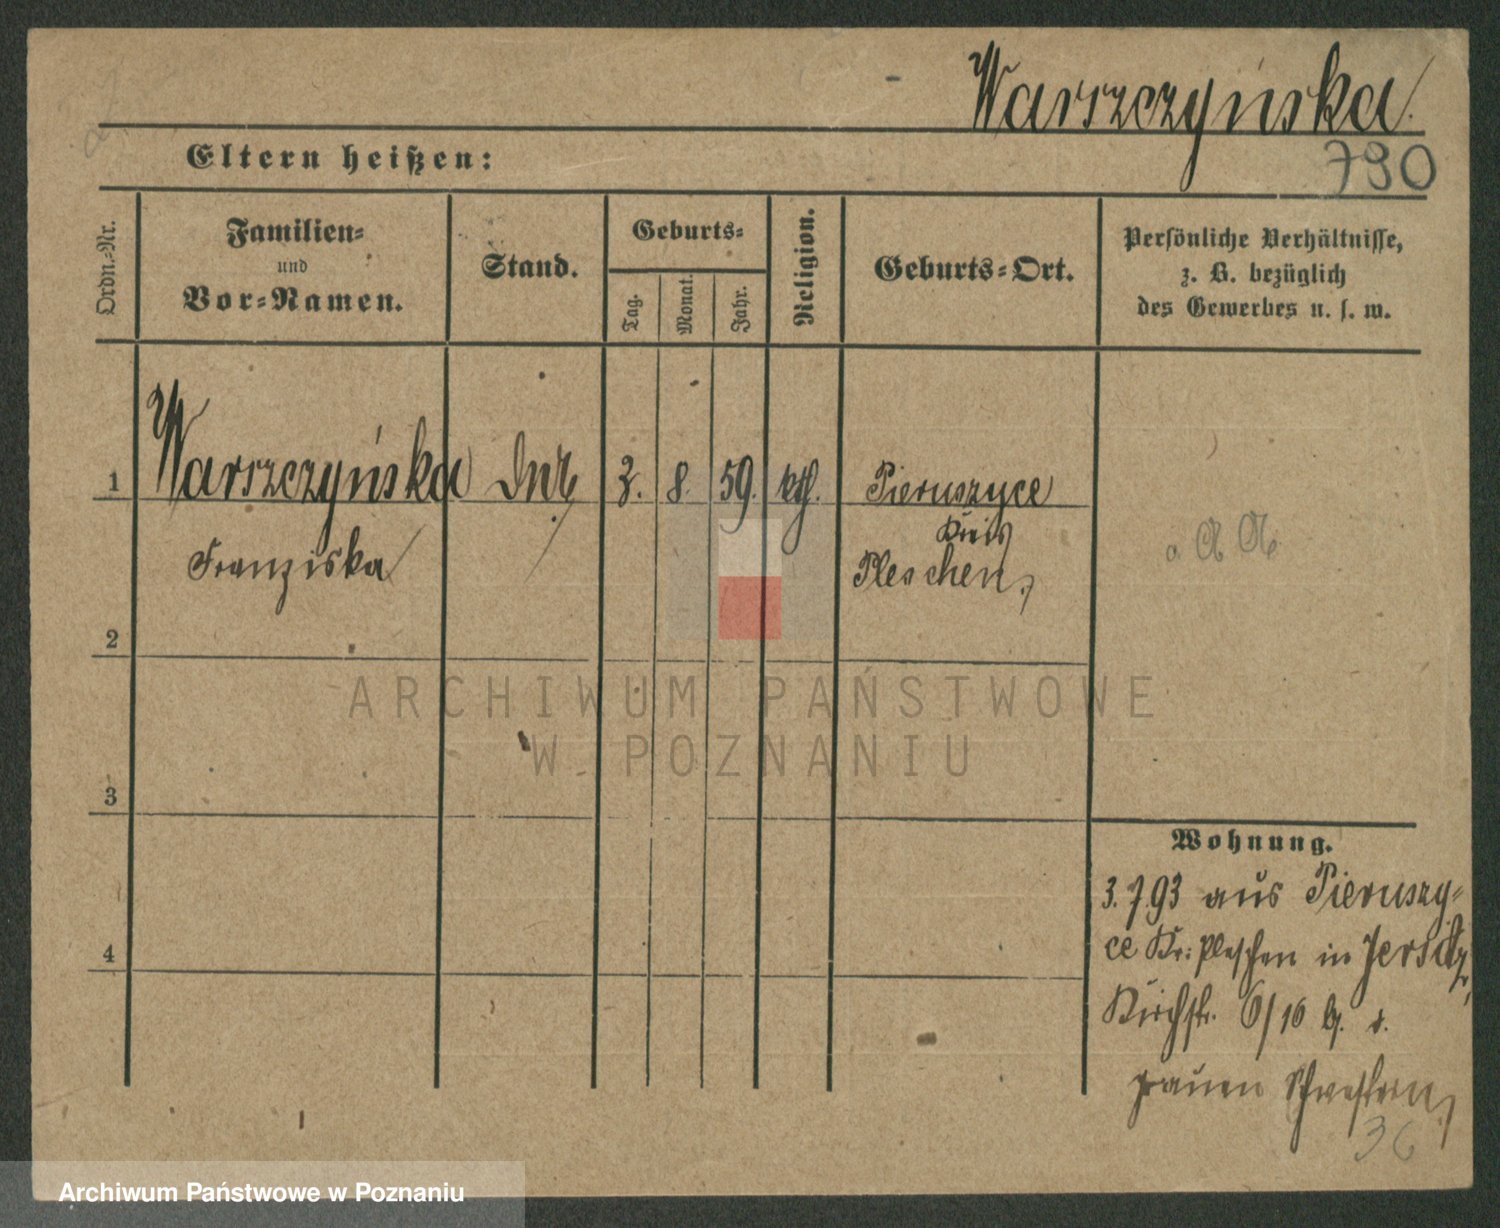 Warszczyńska
790
Eltern heißen:
Ordn.-Nr.
Familien-
und
Vor-Namen.
Stand.
Geburts-
Tag.
Monat.
Jahr.
Religion.
Geburts-Ort.
Persönliche Verhältnisse,
z. B. bezüglich
des Gewerbes u. s. w.
1 Warszczyńska 3. 8. 59. kth. Pieruszyce
Kreis
Franziska Pleschen
2
ARCHIWUM PAŃSTWOWE
W POZNANIU
3
Wohnung.
3.7.93 aus Pieruszy-
ce Kr: Pleschen in Jersitz,
4
Kirchstr. 6/10 b. d.
grauen Schwestern
36
Archiwum Państwowe w Poznaniu